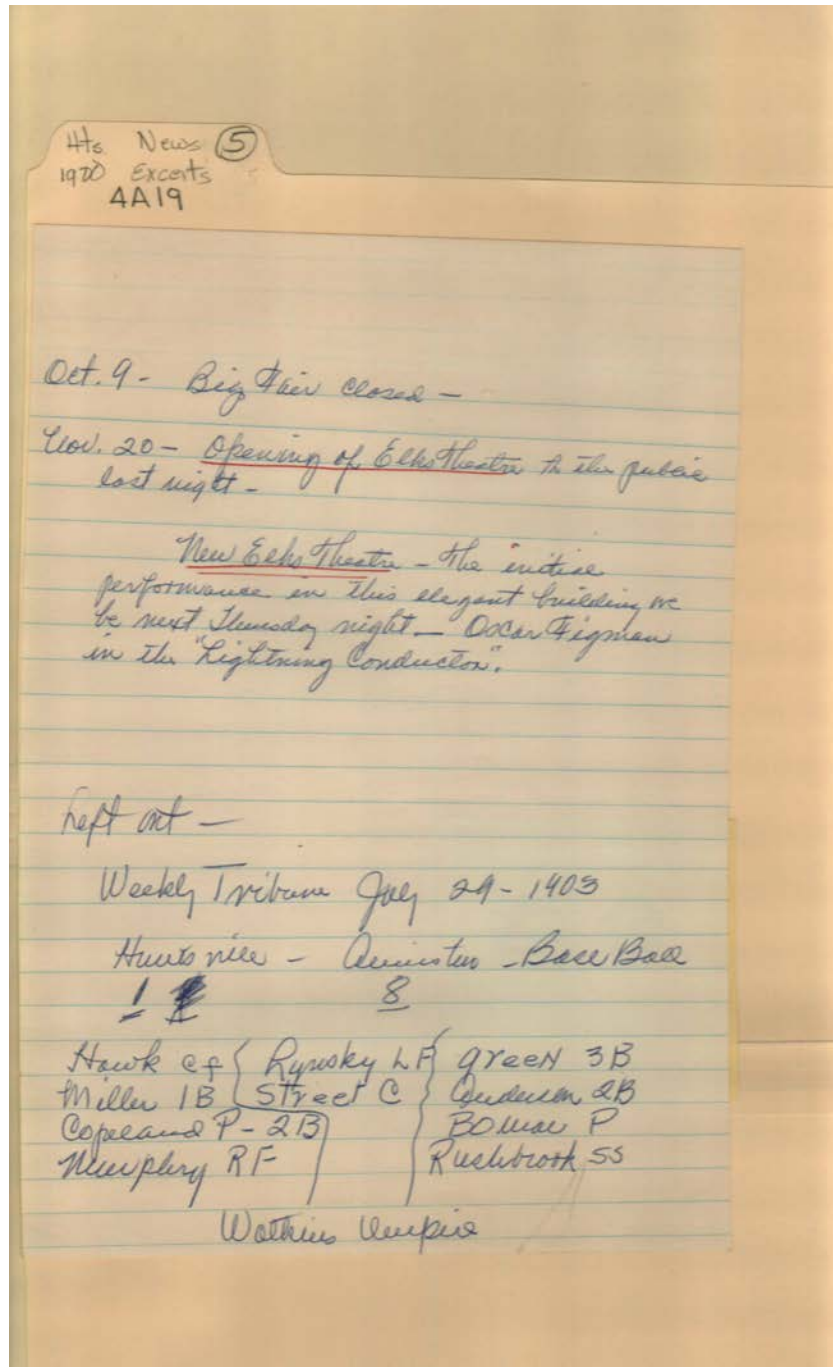 Hts. News (5)
1900 Excerts
4A19
Oct. 9 - Big Fair closed -
Nov. 20 - Opening of Elks Theatre to the public
last night -
New Elks Theatre - The initial
performance in this elegant building
be next Thursday night - Oscar Figman
in the "Lightning Conductor".
Left out -
Weekly Tribune July 29 - 1903
Huntsville - Anniston - Base Ball
1 8
Hawk cf Rynsky LF Green 3B
Miller 1B Street C Anderson 2B
Copeland P - 2B Bomar P
Murphry RF Rushbrook SS
Watkins Umpire